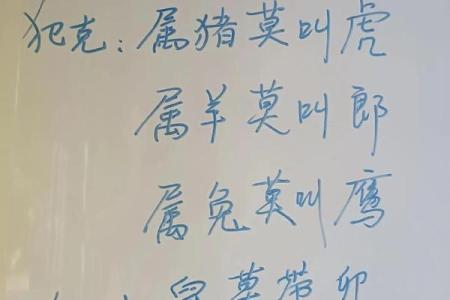 犯克：属猪莫叫虎
属羊莫叫郎
属兔莫叫鹰
莫带卯